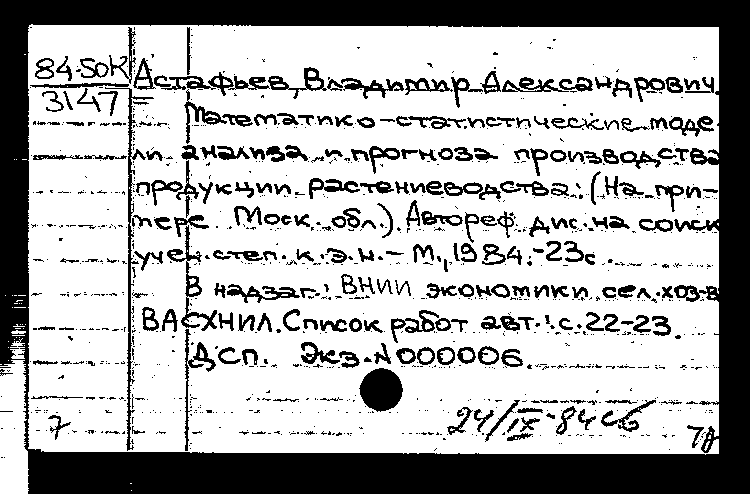 84-50К Астафьев, Владимир Александрович.
3147
Математико-статистические моде-
ли анализа и прогноза производства
продукции растениеводства: (На при-
мере Моск. обл.). Автореф. дис. на соиск.
учен. степ. к.э.н. - М., 1984. - 23с.
В надзаг.: ВНИИ экономики сел. хоз-в
ВАСХНИЛ. Список работ авт.: с. 22-23.
ДСП. Экз. N 000006.
7 24/IX-84